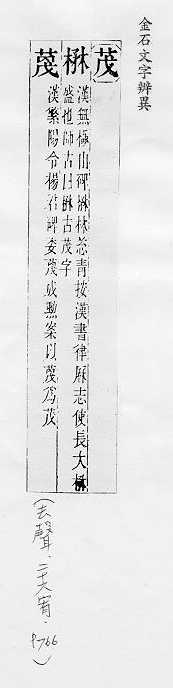 金石文字辨異
茂
楙 漢無極山碑楙林芯青按漢書律厤志使長大楙
盛也師古曰楙古茂字
漢繁陽令楊君碑委成案以爲茂
(去聲.二十六宥.P766)